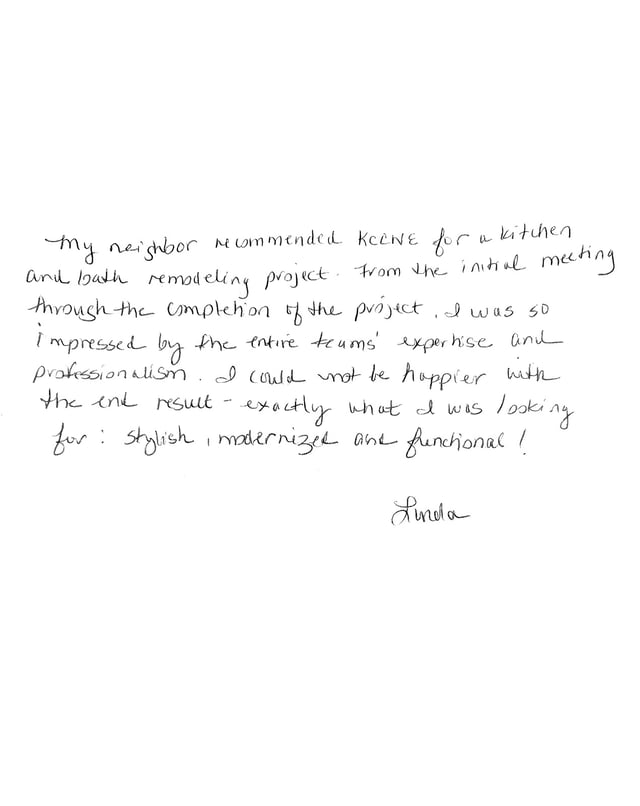 My neighbor recommended KEENE for a kitchen
and bath remodeling project. From the initial meeting
through the completion of the project, I was so
impressed by the entire teams' expertise and
professionalism. I could not be happier with
the end result - exactly what I was looking
for: stylish, modernized and functional!
Linda